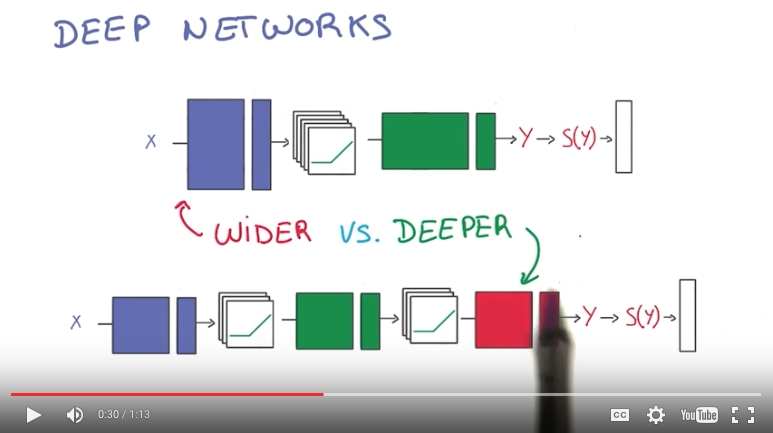 DEEP NETWORKS
X Y S(Y)
WIDER VS. DEEPER
X Y S(Y)
0:30 / 1:13 CC YouTube